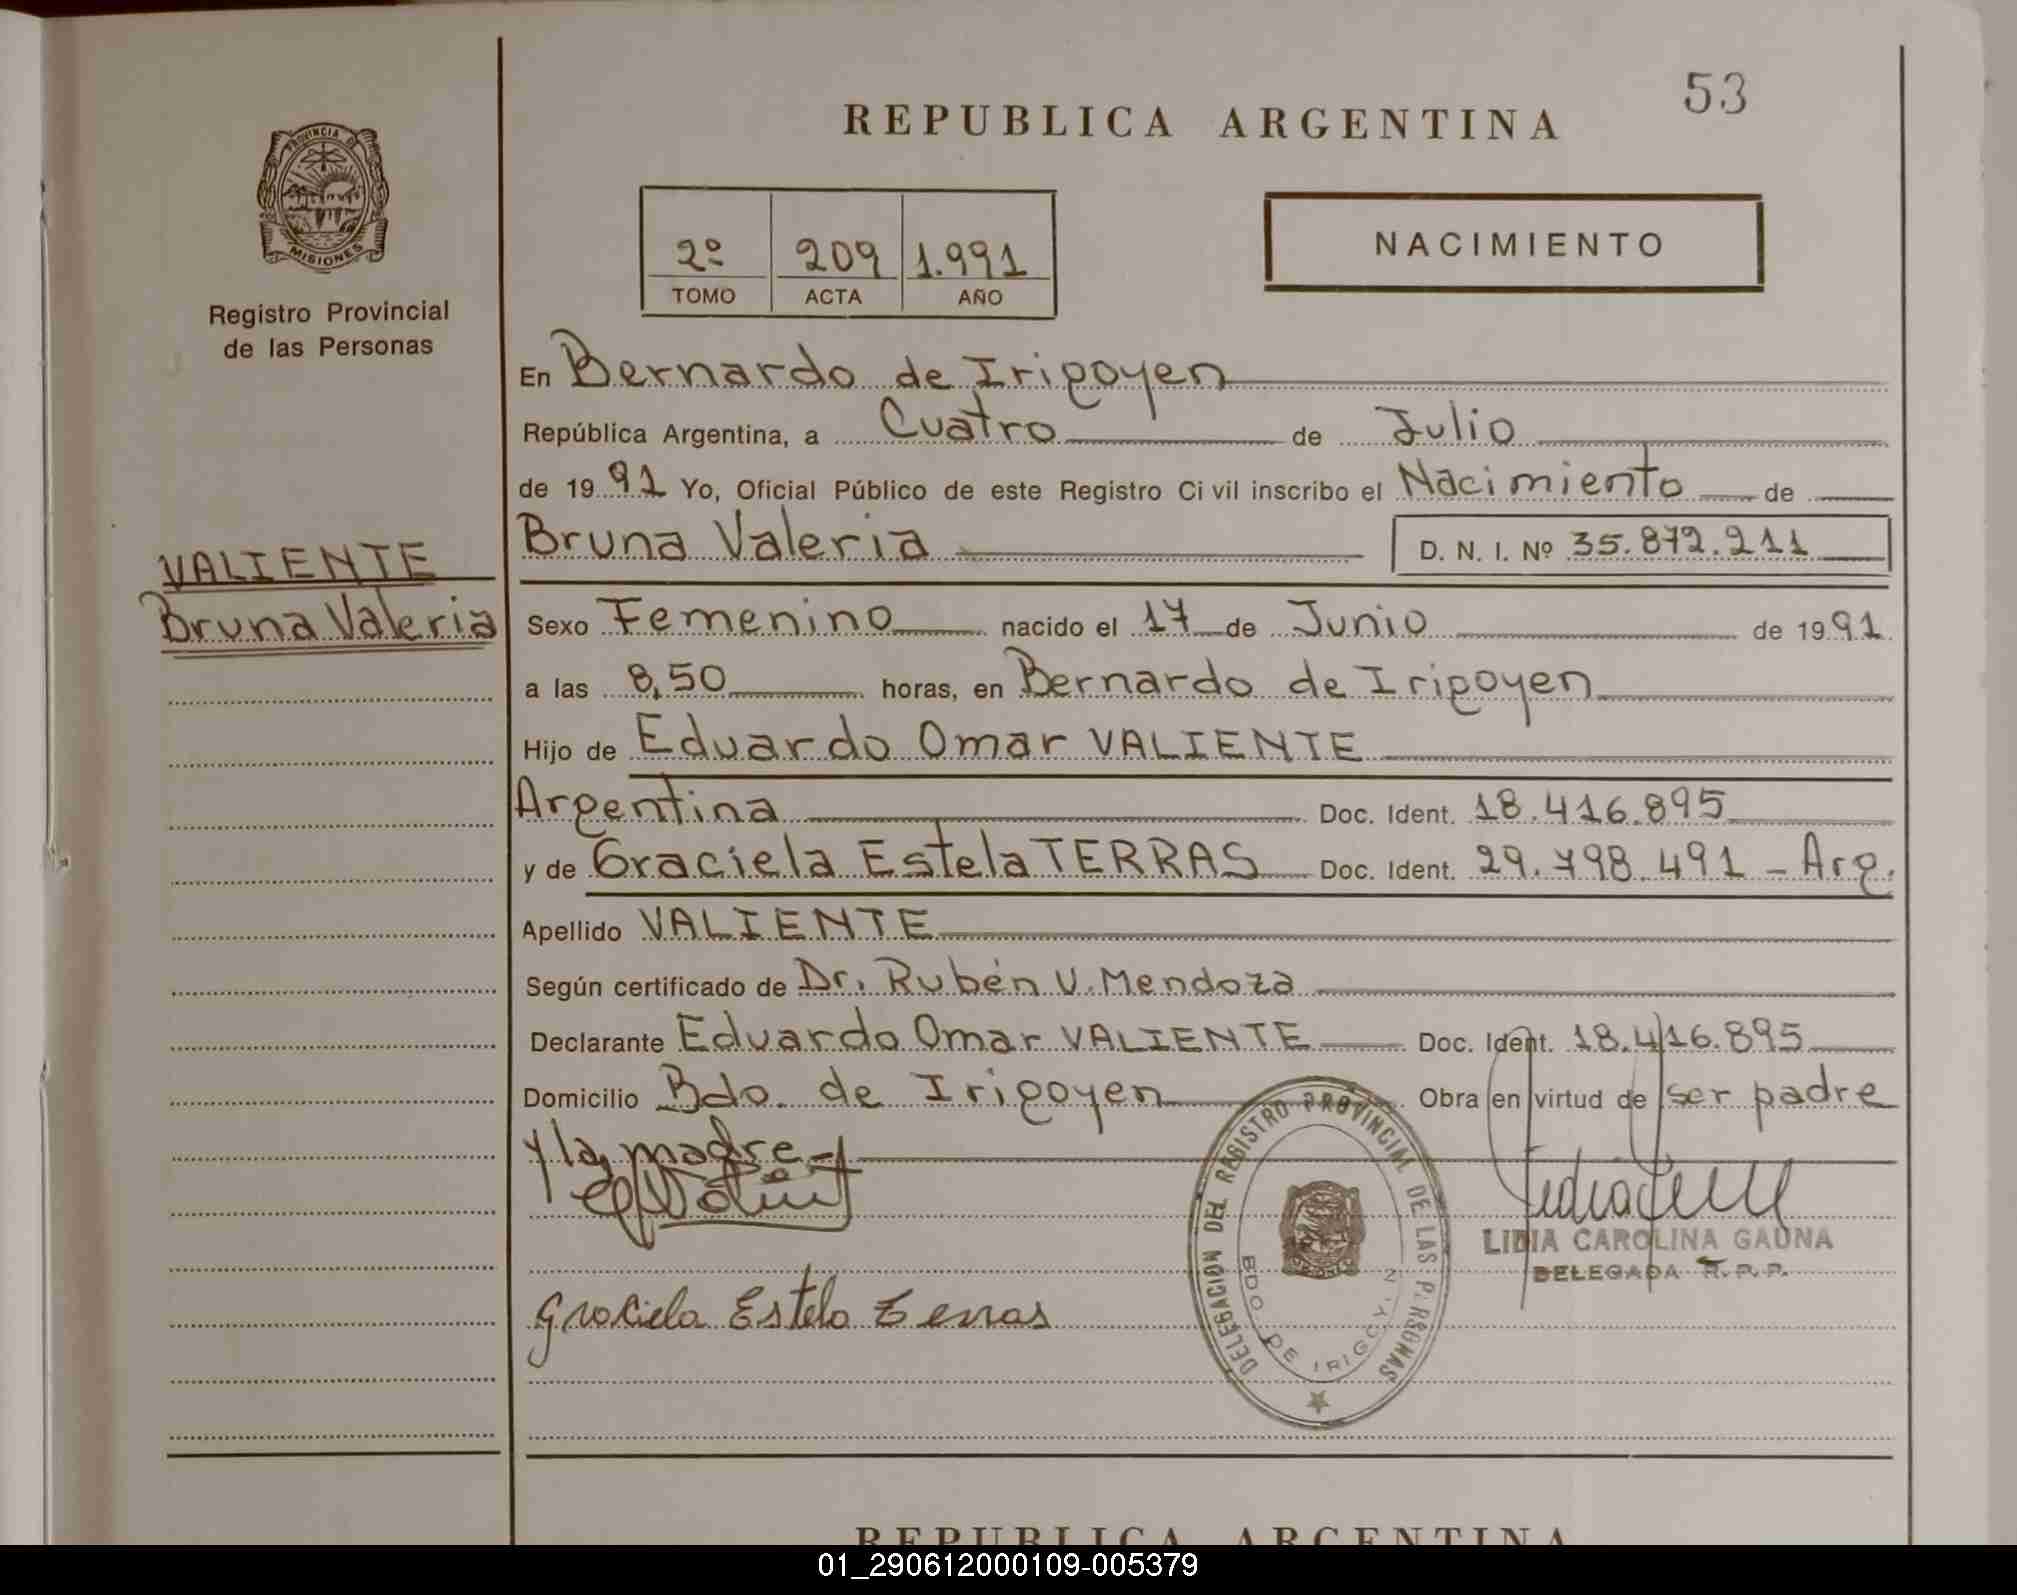 53
REPUBLICA ARGENTINA
PROVINCIA DE
MISIONES
Registro Provincial
de las Personas
2º 209 1.991
TOMO ACTA AÑO
NACIMIENTO
En Bernardo de Irigoyen
República Argentina, a Cuatro de Julio
de 1991 Yo, Oficial Público de este Registro Civil inscribo el Nacimiento de
Bruna Valeria D. N. I. Nº 35.872.211
VALIENTE
Bruna Valeria
Sexo Femenino nacido el 17 de Junio de 1991
a las 8,50 horas, en Bernardo de Irigoyen
Hijo de Eduardo Omar VALIENTE
Argentina Doc. Ident. 18.416.895
y de Graciela Estela TERRAS Doc. Ident. 29.798.491 - Arg.
Apellido VALIENTE
Según certificado de Dr. Rubén V. Mendoza
Declarante Eduardo Omar VALIENTE Doc. Ident. 18.416.895
Domicilio Bdo. de Irigoyen Obra en virtud de ser padre
y la madre -
DELEGACION DEL REGISTRO PROVINCIAL DE LAS P.RSONAS
BDO DE IRIGOY.N
LIDIA CAROLINA GAUNA
DELEGADA R.P.P.
Graciela Estela Terras
REPUBLICA ARGENTINA
01_290612000109-005379